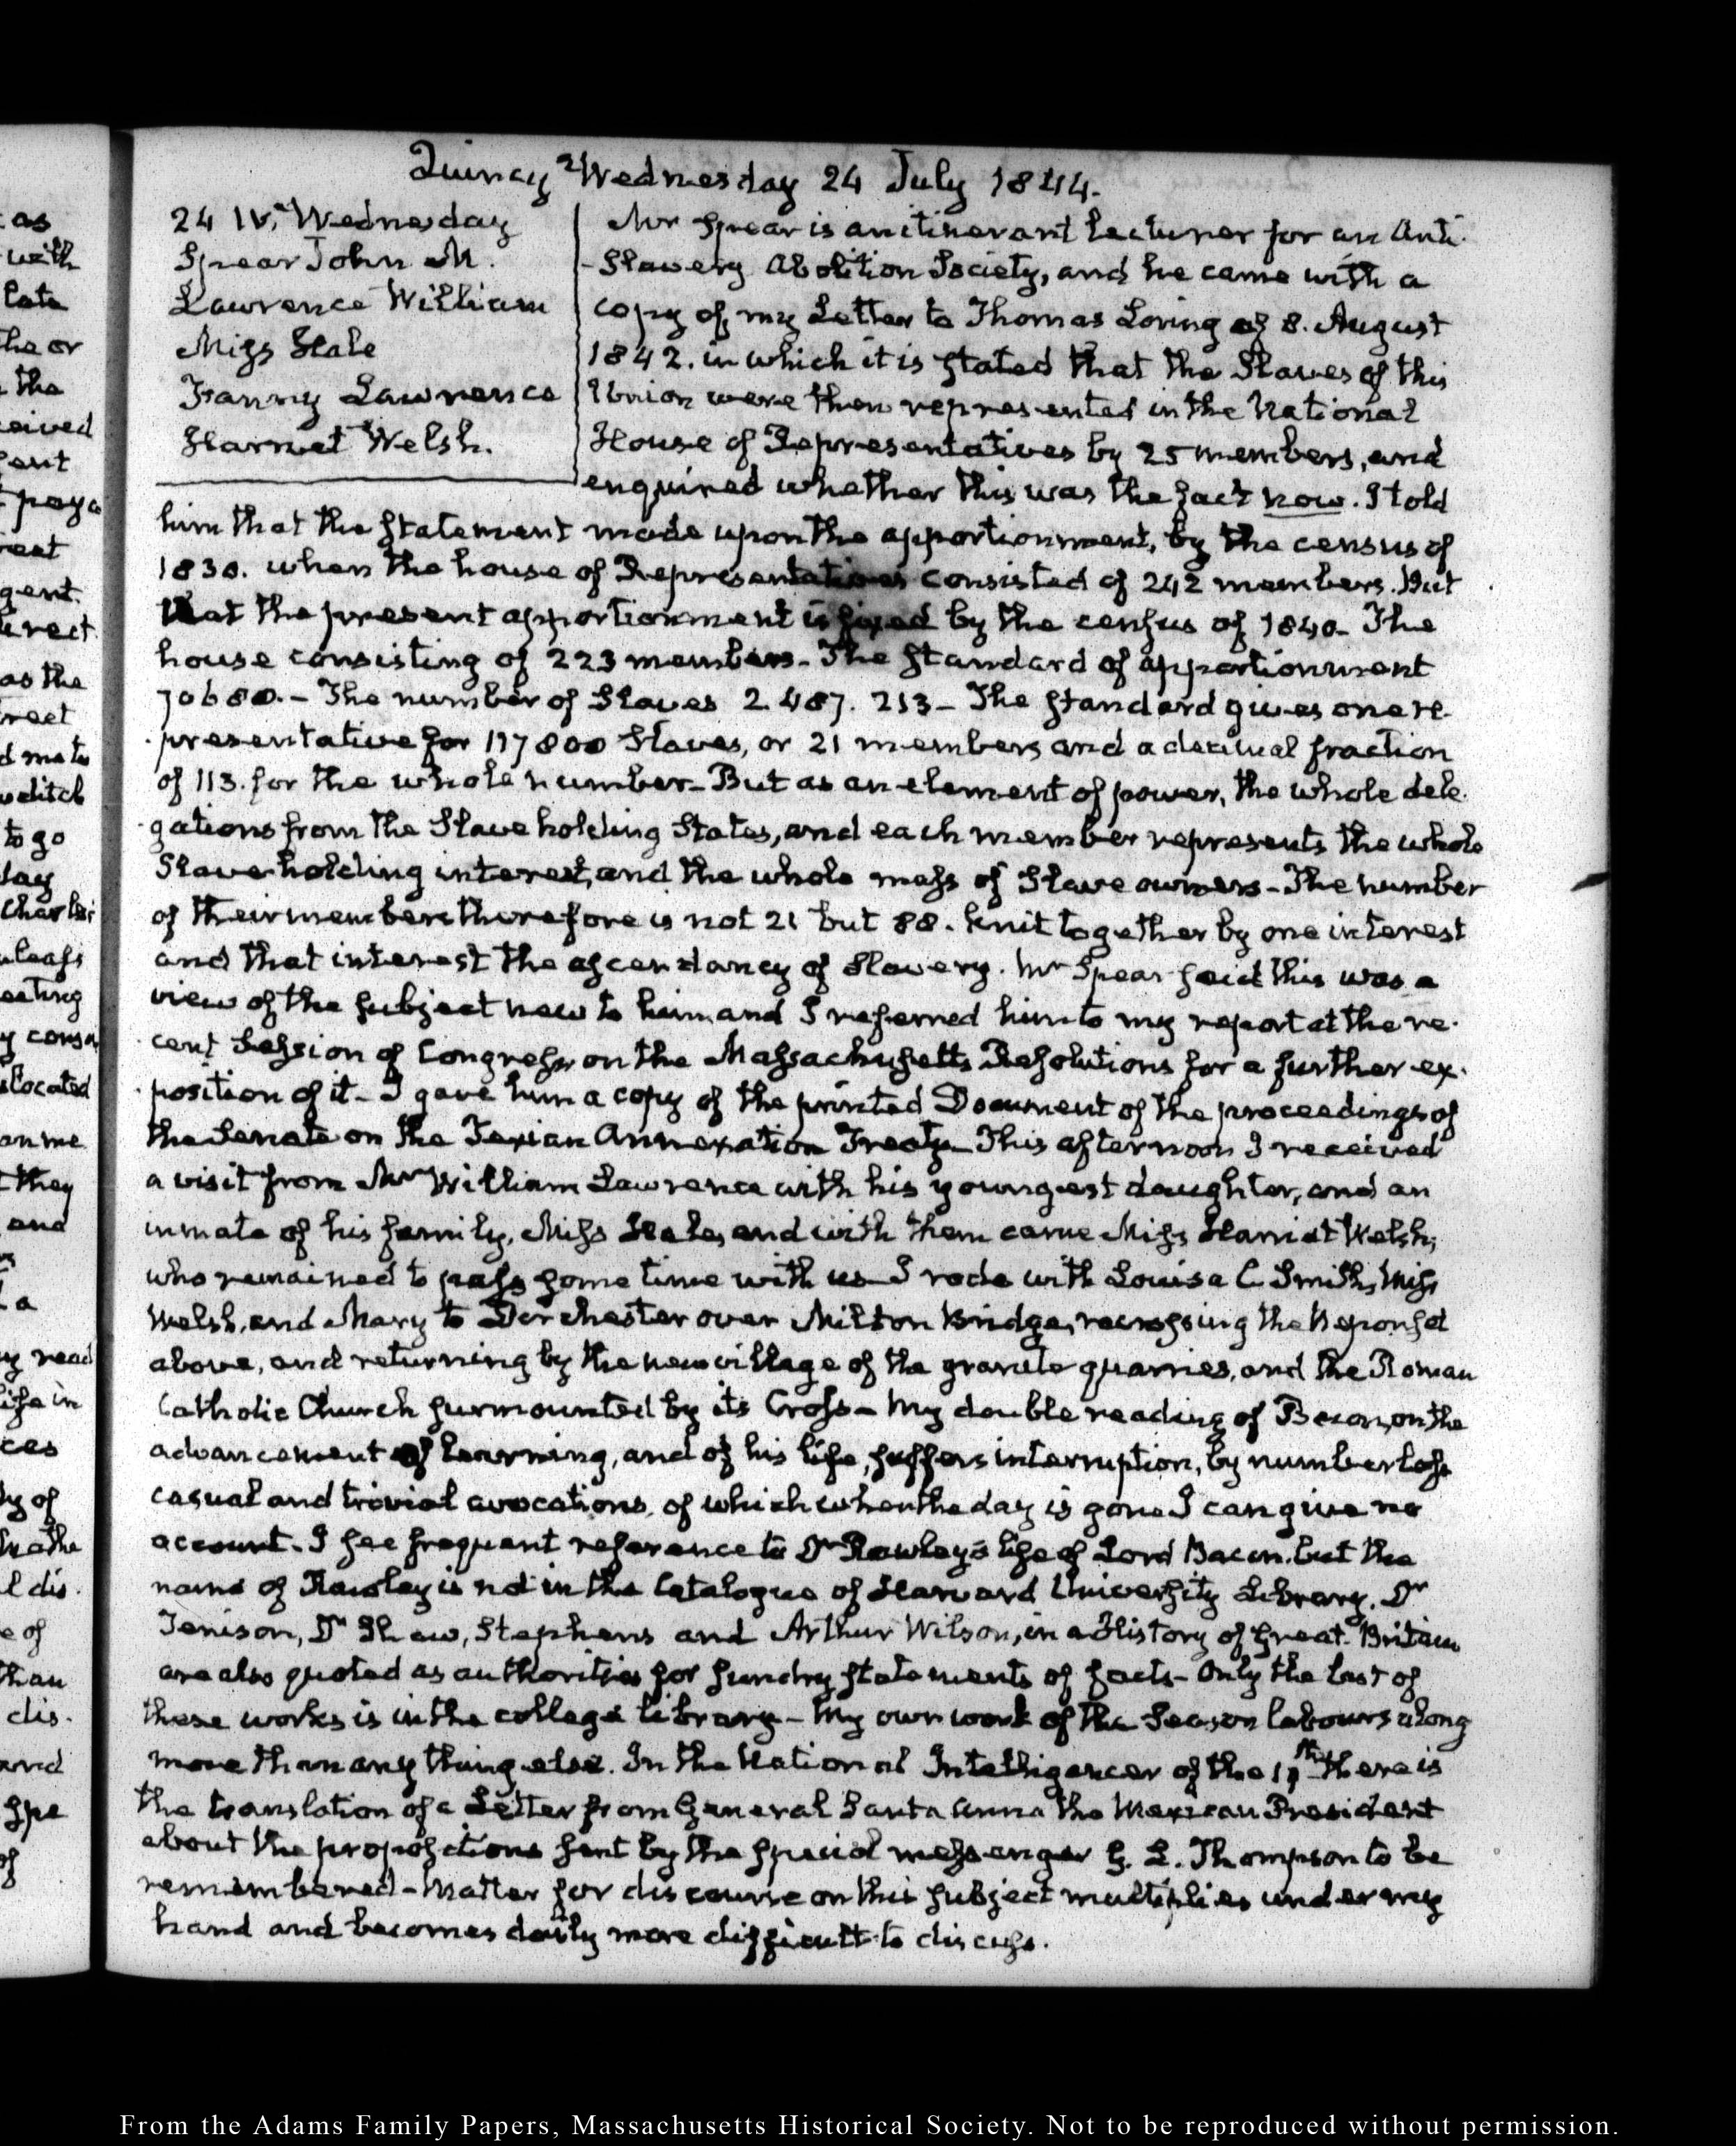 Quincy Wednesday 24 July 1844.
24 IV. Wednesday
Spear John M.
Lawrence William
Miss Hale
Fanny Lawrence
Harriet Welsh.
Mr Spear is an itinerant Lecturer for an Anti-
-Slavery Abolition Society, and he came with a
copy of my Letter to Thomas Loring of 8. August
1842. in which it is stated that the Slaves of this
Union were then represented in the National
House of Representatives by 25 members, and
enquired whether this was the fact now. I told
him that the statement made upon the apportionment, by the census of
1830. when the house of Representatives consisted of 242 members. But
that the present apportionment is fixed by the census of 1840. The
house consisting of 223 members. The standard of apportionment
70680. – The number of Slaves 2.487.213 – The standard gives one re-
-presentative for 117800 Slaves, or 21 members and a decimal fraction
of 113. for the whole number. But as an element of power, the whole dele-
-gations from the Slave holding States, and each member represents the whole
Slave holding interest, and the whole mass of Slave owners – The number
of their members therefore is not 21 but 88. knit together by one interest
and that interest the ascendancy of Slavery. Mr Spear said this was a
view of the subject new to him and I referred him to my report at the re-
-cent Session of Congress on the Massachusetts Resolutions for a further ex-
-position of it – I gave him a copy of the printed Document of the proceedings of
the Senate on the Texian Annexation Treaty – This afternoon I received
a visit from Mr William Lawrence with his youngest daughter, and an
inmate of his family, Miss Hale, and with them came Miss Harriet Welsh,
who remained to pass some time with us – I rode with Louisa C. Smith, Miss
Welsh, and Mary to Dorchester over Milton Bridge, recrossing the Neponset
above, and returning by the new village of the granite quarries, and the Roman
Catholic Church surmounted by its Cross – My double reading of Bacon, on the
advancement of learning, and of his life, suffers interruption, by numberless
casual and trivial avocations, of which when the day is gone I can give no
account. I see frequent reference to Dr Rawley's life of Lord Bacon, but the
name of Rawley is not in the Catalogue of Harvard University Library. Dr
Tenison, Dr Shaw, Stephens and Arthur Wilson, in a History of Great-Britain
are also quoted as authorities for sundry statements of facts – Only the last of
these works is in the college library – My own work of the Season labours along
more than any thing else. In the National Intelligencer of the th there is
the translation of a Letter from General Santa Anna the Mexican President
about the propositions sent by the special messenger G. L. Thompson to be
remembered – Matter for discourse on this subject multiplies under my
hand and becomes daily more difficult to discuss.
From the Adams Family Papers, Massachusetts Historical Society. Not to be reproduced without permission.